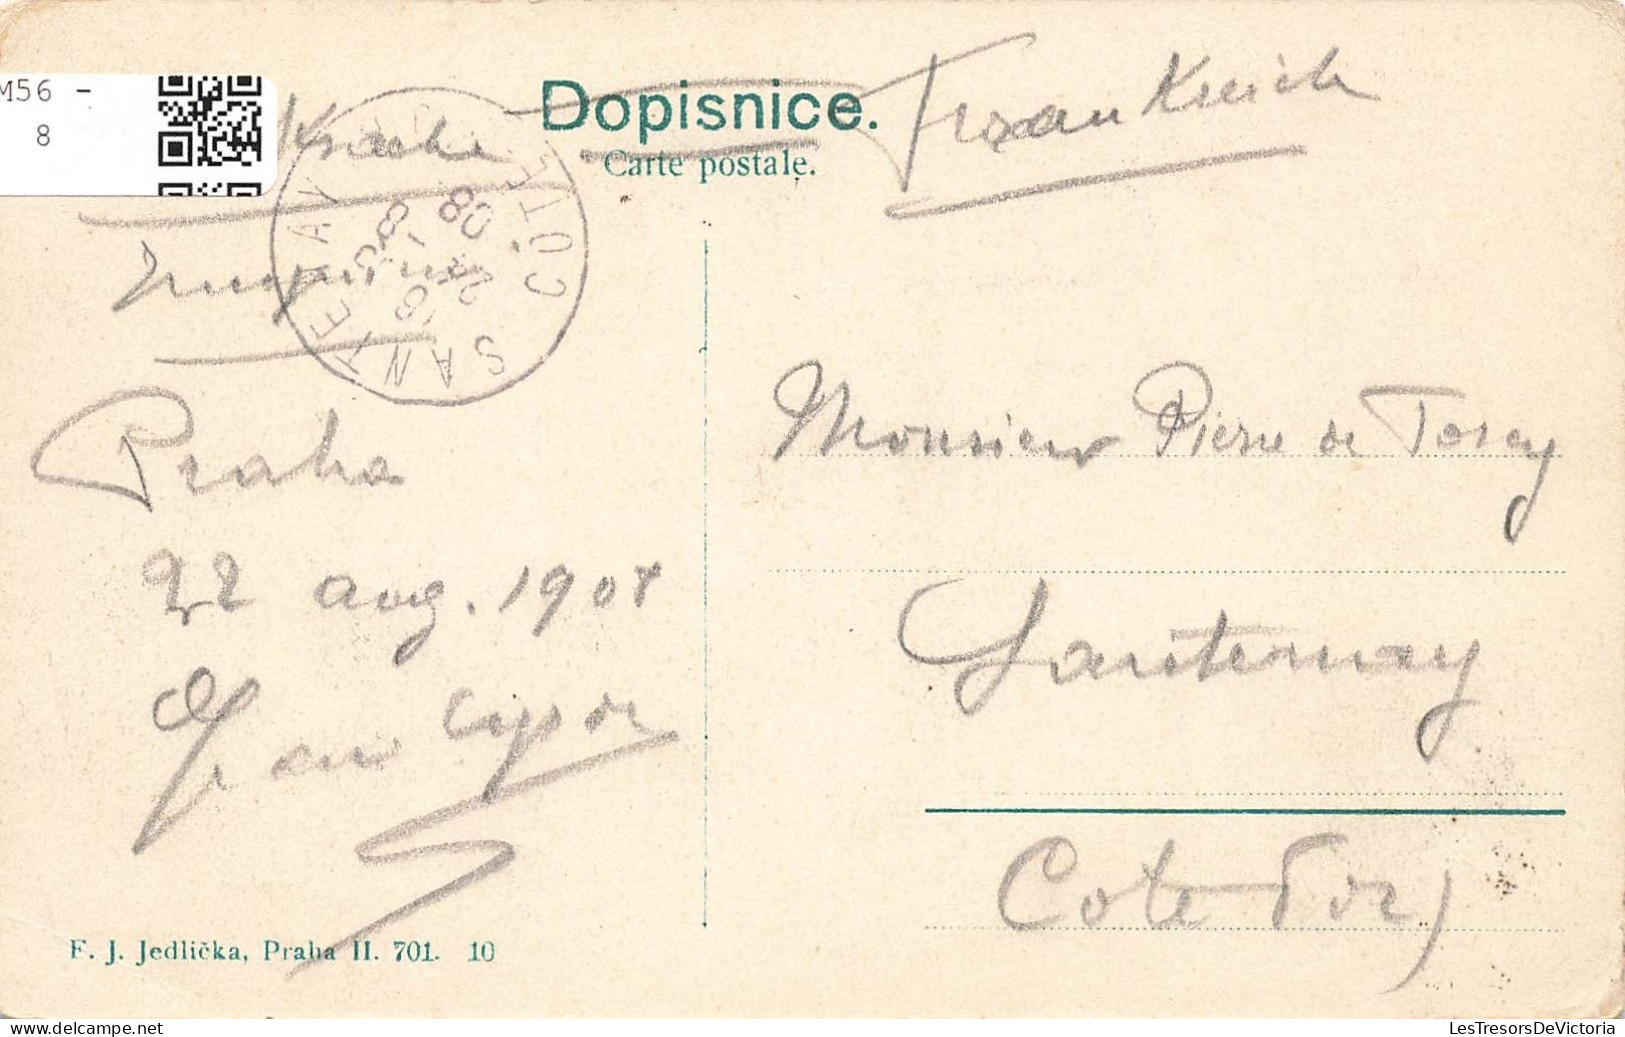 M56 -
8
Dopisnice.
Carte postale.
Frankreich
SANTENAY
CÔTE
Praha
22 aug. 1908
Jean
Monsieur Pierre de Torcy
Santenay
Cote d'or)
F. J. Jedlička, Praha II. 701. 10
LesTresorsDeVictoria